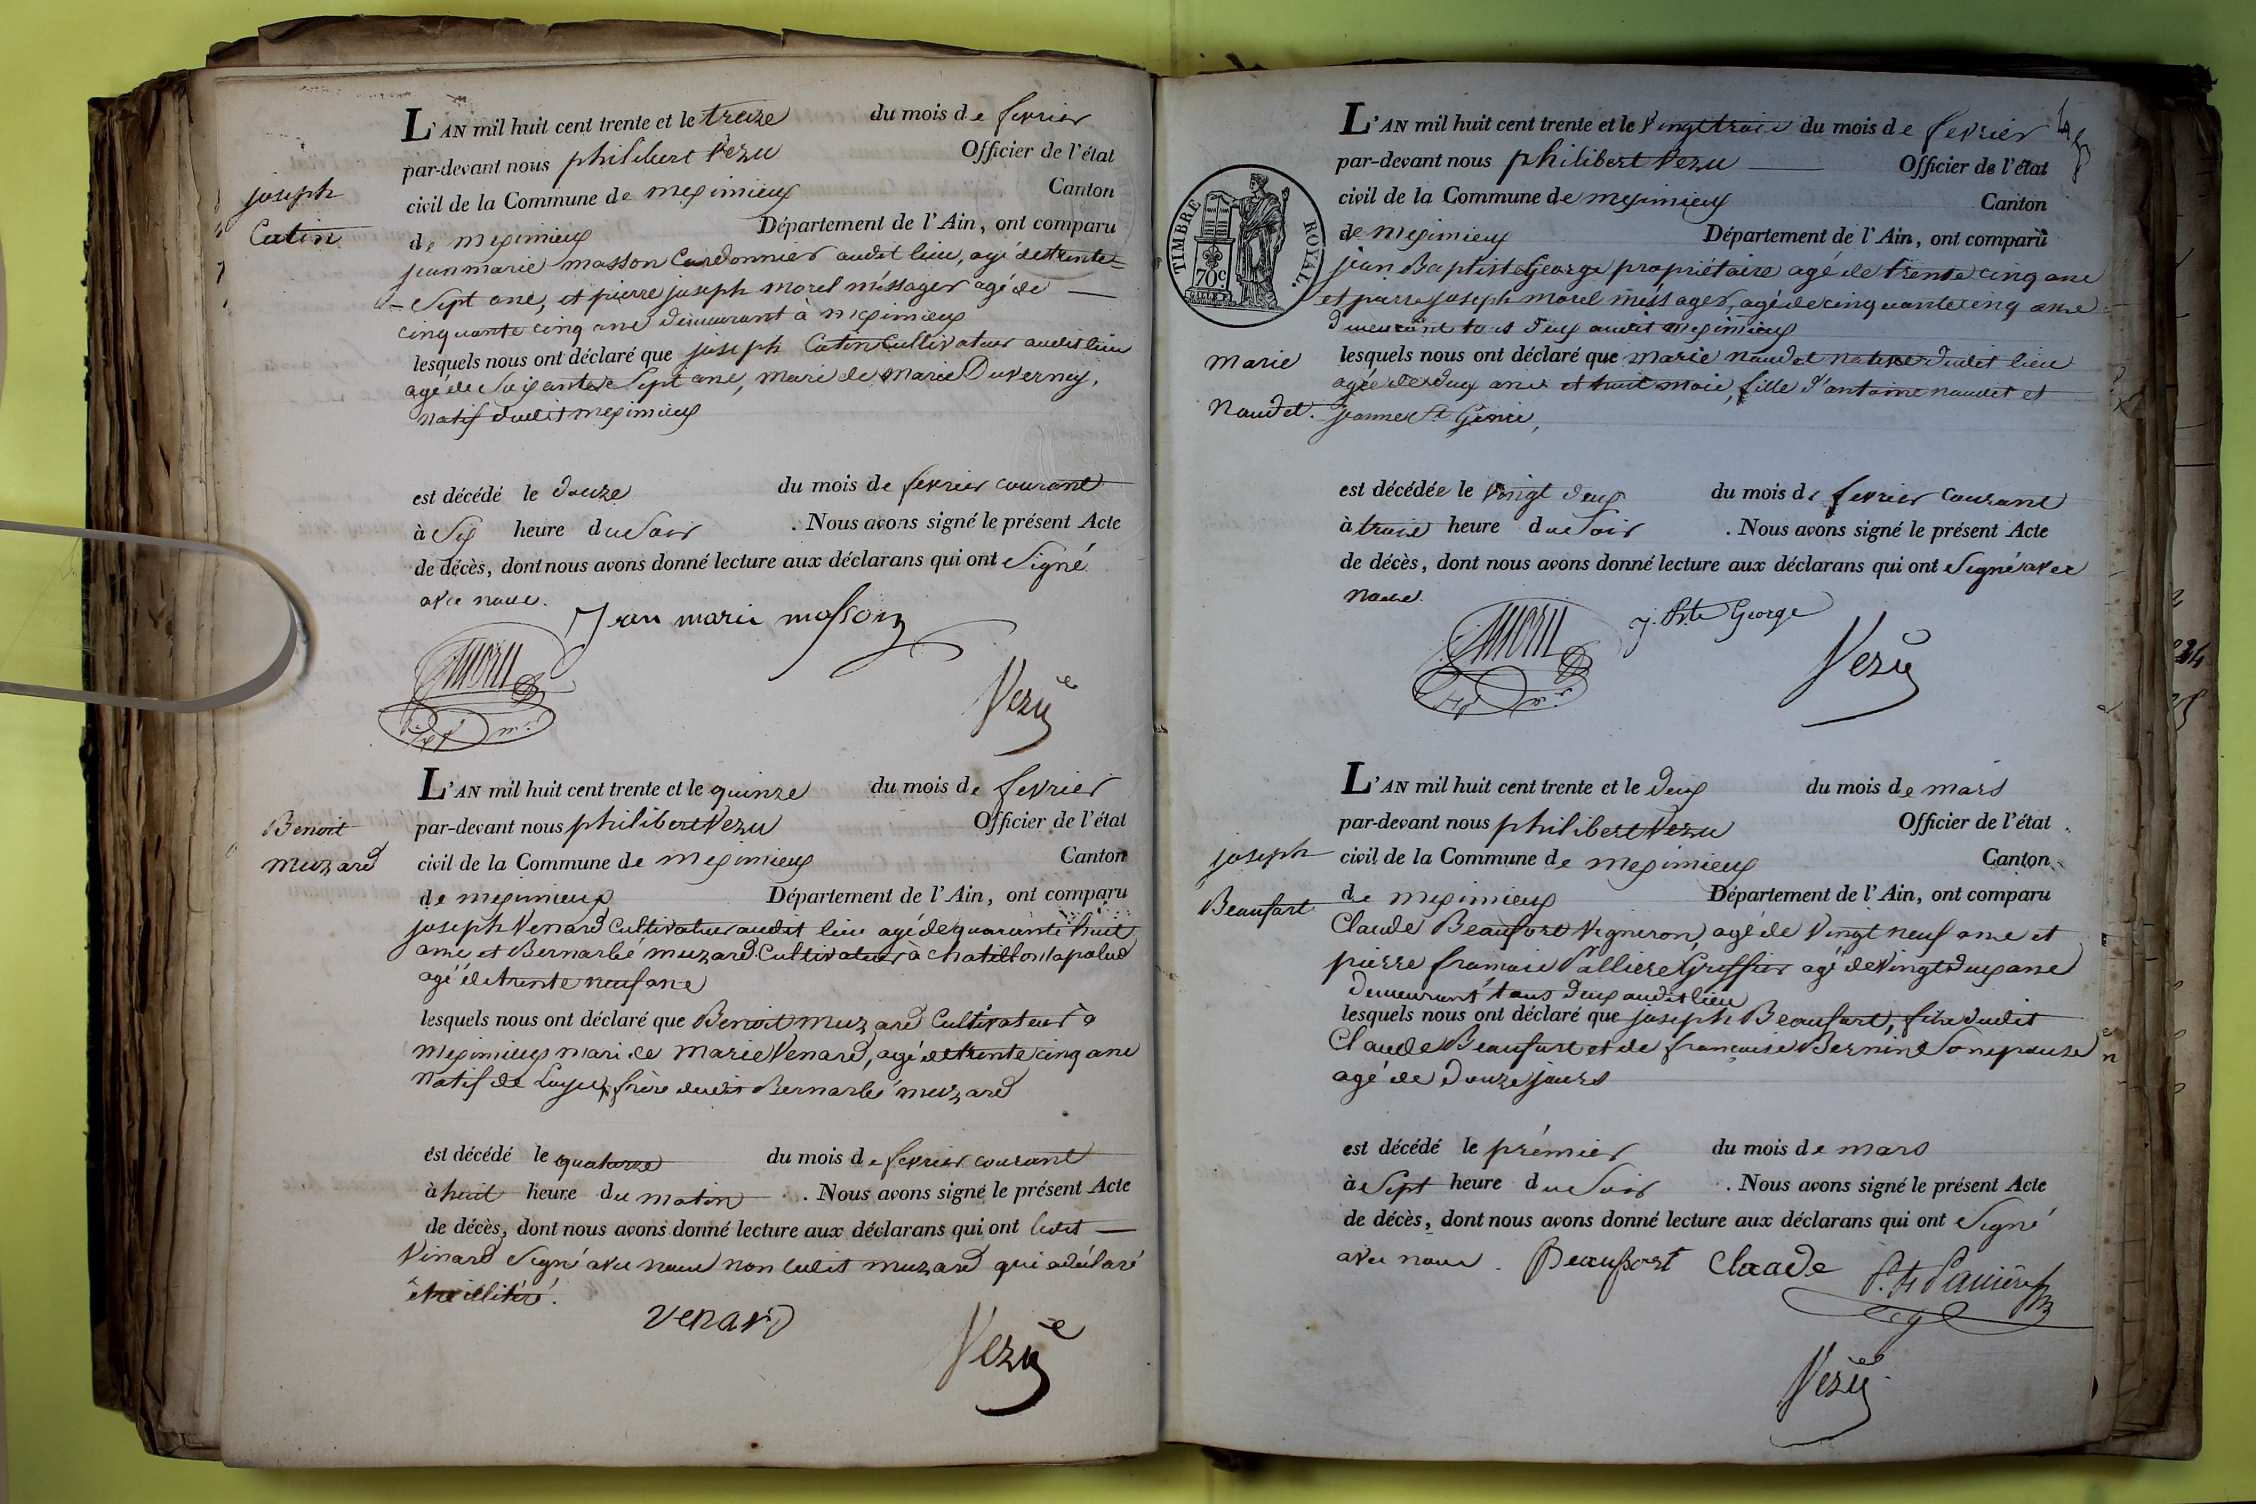 L'AN mil huit cent trente et le treize du mois de fevrier
par-devant nous philibert Vezu Officier de l'état
civil de la Commune de meximieux Canton
de meximieux Département de l'Ain, ont comparu
joseph
Catin
jean marie masson Cordonnier audit lieu, agé de trente-
-Sept ans, et pierre joseph morel méssager agé de
cinquante cinq ans demeurant à meximieux
lesquels nous ont déclaré que joseph Catin Cultivateur audit lieu
agé de Soixante Sept ans, mari de marie Duverney,
natif dudit meximieux
est décédé le douze du mois de fevrier courant
à Six heure du Soir . Nous avons signé le présent Acte
de décès, dont nous avons donné lecture aux déclarans qui ont Signé
avec nous.
Jean marie masson
Vezu
L'AN mil huit cent trente et le quinze du mois de fevrier
Benoit
muzard
par-devant nous philibert Vezu Officier de l'état
civil de la Commune de meximieux Canton
de meximieux Département de l'Ain, ont comparu
joseph Venard Cultivateur audit lieu agé de quarante huit
ans et Bernarbé muzard Cultivateur à chatillon lapalud
agé de trente neuf ans
lesquels nous ont déclaré que Benoit muzard Cultivateur à
meximieux mari de marie Venard, agé de trente cinq ans
natif de Loyes, frère dudit Bernarbé muzard
est décédé le quatorze du mois de fevrier courant
à huit heure du matin . Nous avons signé le présent Acte
de décès, dont nous avons donné lecture aux déclarans qui ont ledit
Vinard Signé avec nous non ledit muzard qui a déclaré
être illitéré.
venard
Vezu
L'AN mil huit cent trente et le Vingt trois du mois de fevrier
par-devant nous philibert Vezu Officier de l'état
civil de la Commune de meximieux Canton
de meximieux Département de l'Ain, ont comparu
TIMBRE ROYAL.
70c
jean Baptiste George propriétaire agé de trente cinq ans
et pierre joseph morel méssager, agé de cinquante cinq ans
demeurant tous deux audit meximieux
marie
naudet.
lesquels nous ont déclaré que marie naudet native dudit lieu
agée de deux ans et huit mois, fille d'antoine naudet et
jeanne St Genis,
est décédée le vingt deux du mois de fevrier courant
à trois heure du Soir . Nous avons signé le présent Acte
de décès, dont nous avons donné lecture aux déclarans qui ont Signé avec
nous.
j. Bte George
Vezu
L'AN mil huit cent trente et le deux du mois de mars
par-devant nous philibert Vezu Officier de l'état
joseph
Beaufort
civil de la Commune de meximieux Canton
de meximieux Département de l'Ain, ont comparu
Claude Beaufort Vigneron, agé de Vingt neuf ans et
pierre françois Greffier agé de Vingt deux ans
demeurant tous deux audit lieu
lesquels nous ont déclaré que joseph Beaufort, fils dudit
Claude Beaufort et de françoise Bernin Son epouse
agé de douze jours
est décédé le prémier du mois de mars
à Sept heure du Soir . Nous avons signé le présent Acte
de décès, dont nous avons donné lecture aux déclarans qui ont Signé
avec nous. Beaufort Claude
Vezu